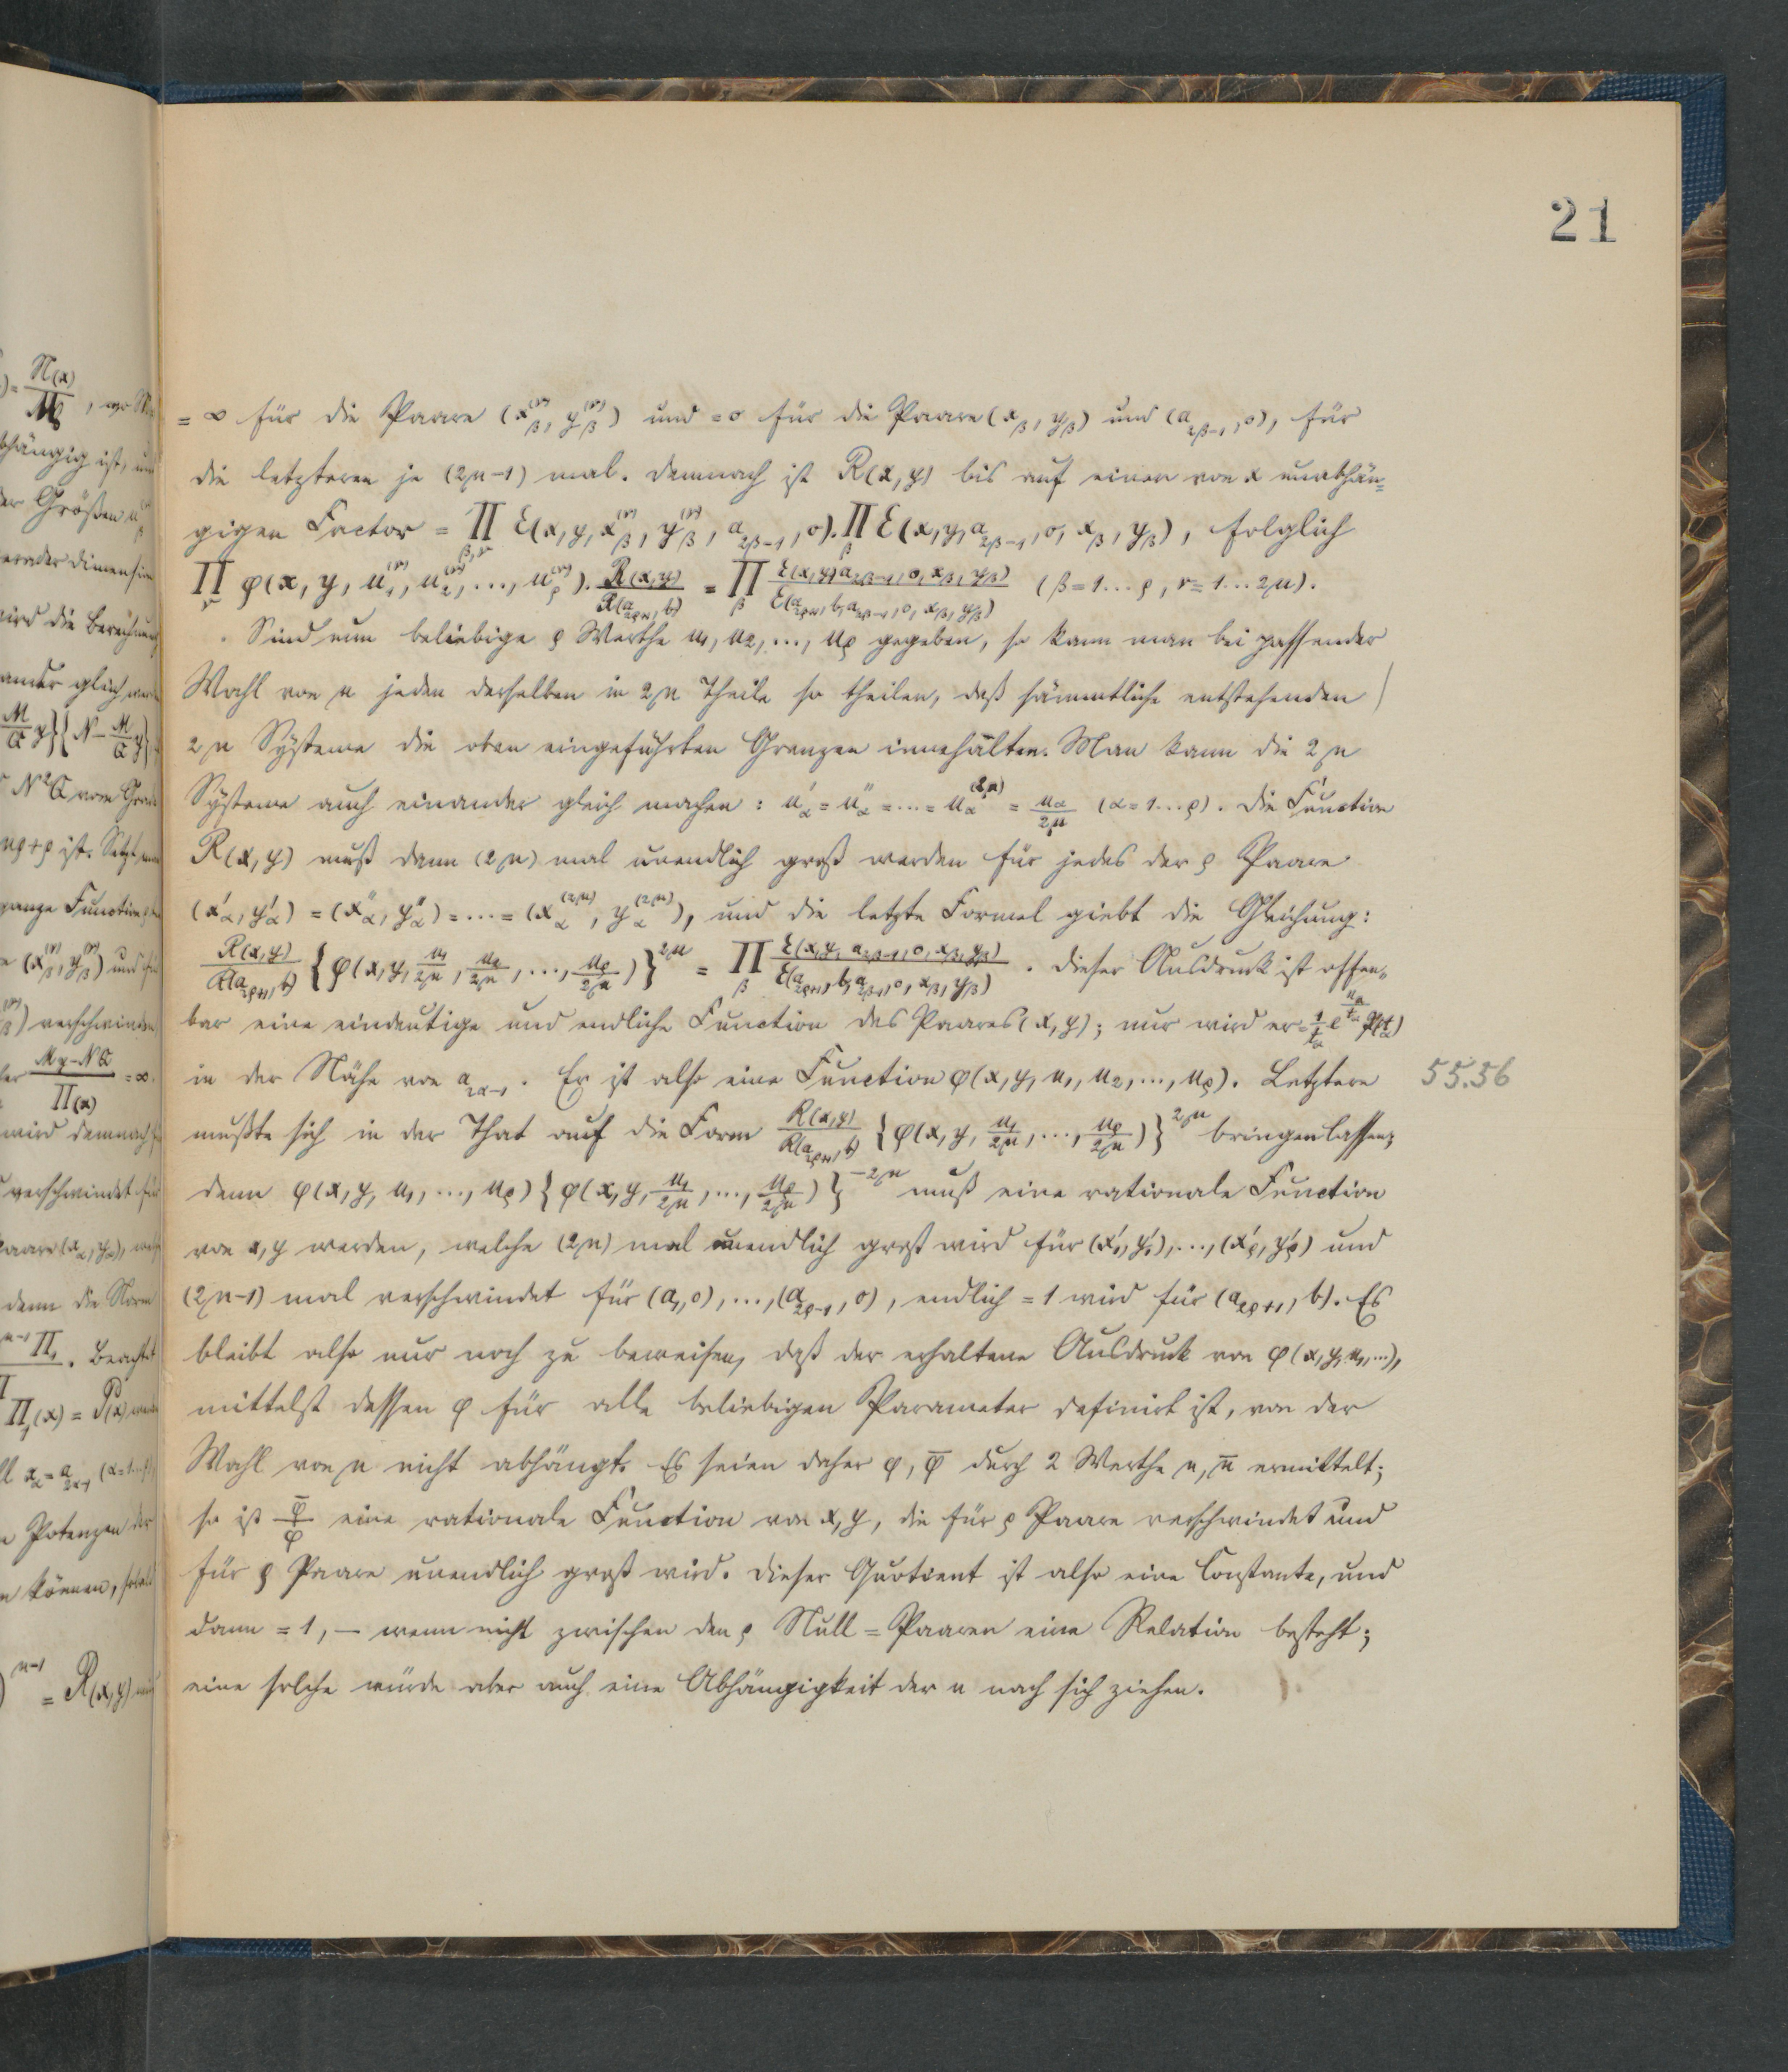 21
= ∞ für die Paare (x_β^(ν), y_β^(ν)) und = 0 für die Paare (x_β, y_β) und (a_{2β-1}, 0), für
die letzteren je (2n-1) mal. Demnach ist R(x, y) bis auf einen von x unabhän-
gigen Factor = ∏_{β,ν} E(x, y, x_β^(ν), y_β^(ν), a_{2β-1}, 0). ∏_β E(x, y, a_{2β-1}, 0, x_β, y_β), folglich
∏_ν φ(x, y, u_1^(ν), u_2^(ν), ..., u_ρ^(ν)). R(x,y)/R(a_{2ρ+1}, b) = ∏_β E(x, y, a_{2β-1}, 0, x_β, y_β)/E(a_{2ρ+1}, b, a_{2β-1}, 0, x_β, y_β) (β = 1...ρ, ν = 1...2n).
Sind nun beliebige ρ Werthe u_1, u_2, ..., u_ρ gegeben, so kann man bei passender
Wahl von n jeden derselben in 2n Theile so theilen, daß sämmtliche entstehenden
2n Systeme die oben eingeführten Grenzen innehalten. Man kann die 2n
Systeme auch einander gleich machen: u'_α = u''_α = ... = u_α^(2n) = u_α/2n (α = 1...ρ). Die Function
R(x, y) muß dann (2n) mal unendlich groß werden für jedes der ρ Paare
(x'_α, y'_α) = (x''_α, y''_α) = ... = (x_α^(2n), y_α^(2n)), und die letzte Formel giebt die Gleichung:
R(x,y)/R(a_{2ρ+1}, b) {φ(x, y, u_1/2n, u_2/2n, ..., u_ρ/2n)}^{2n} = ∏_β E(x, y, a_{2β-1}, 0, x_β, y_β)/E(a_{2ρ+1}, b, a_{2β-1}, 0, x_β, y_β). Dieser Ausdruck ist offen-
bar eine eindeutige und endliche Function des Paares (x, y); nur wird er = 1/t_α e^{u_α/t_α} P(t_α)
in der Nähe von a_{2α-1}. Er ist also eine Function φ(x, y, u_1, u_2, ..., u_ρ). Letztere
55.56
mußte sich in der That auf die Form R(x,y)/R(a_{2ρ+1}, b) {φ(x, y, u_1/2n, ..., u_ρ/2n)}^{2n} bringen lassen;
denn φ(x, y, u_1, ..., u_ρ) {φ(x, y, u_1/2n, ..., u_ρ/2n)}^{-2n} muß eine rationale Function
von x, y werden, welche (2n) mal unendlich groß wird für (x'_1, y'_1), ..., (x'_ρ, y'_ρ) und
(2n-1) mal verschwindet für (a_1, 0), ..., (a_{2ρ-1}, 0), endlich = 1 wird für (a_{2ρ+1}, b). Es
bleibt also nur noch zu beweisen, daß der erhaltene Ausdruck von φ(x, y, u_1, ...),
mittelst dessen φ für alle beliebigen Parameter definirt ist, von der
Wahl von n nicht abhängt. Es seien daher φ, φ̄ durch 2 Werthe n, n̄ ermittelt;
so ist φ̄/φ eine rationale Function von x, y, die für ρ Paare verschwindet und
für ρ Paare unendlich groß wird. Dieser Quotient ist also eine Constante, und
dann = 1, — wenn nicht zwischen den ρ Null-Paaren eine Relation besteht;
eine solche würde aber auch eine Abhängigkeit der u nach sich ziehen.